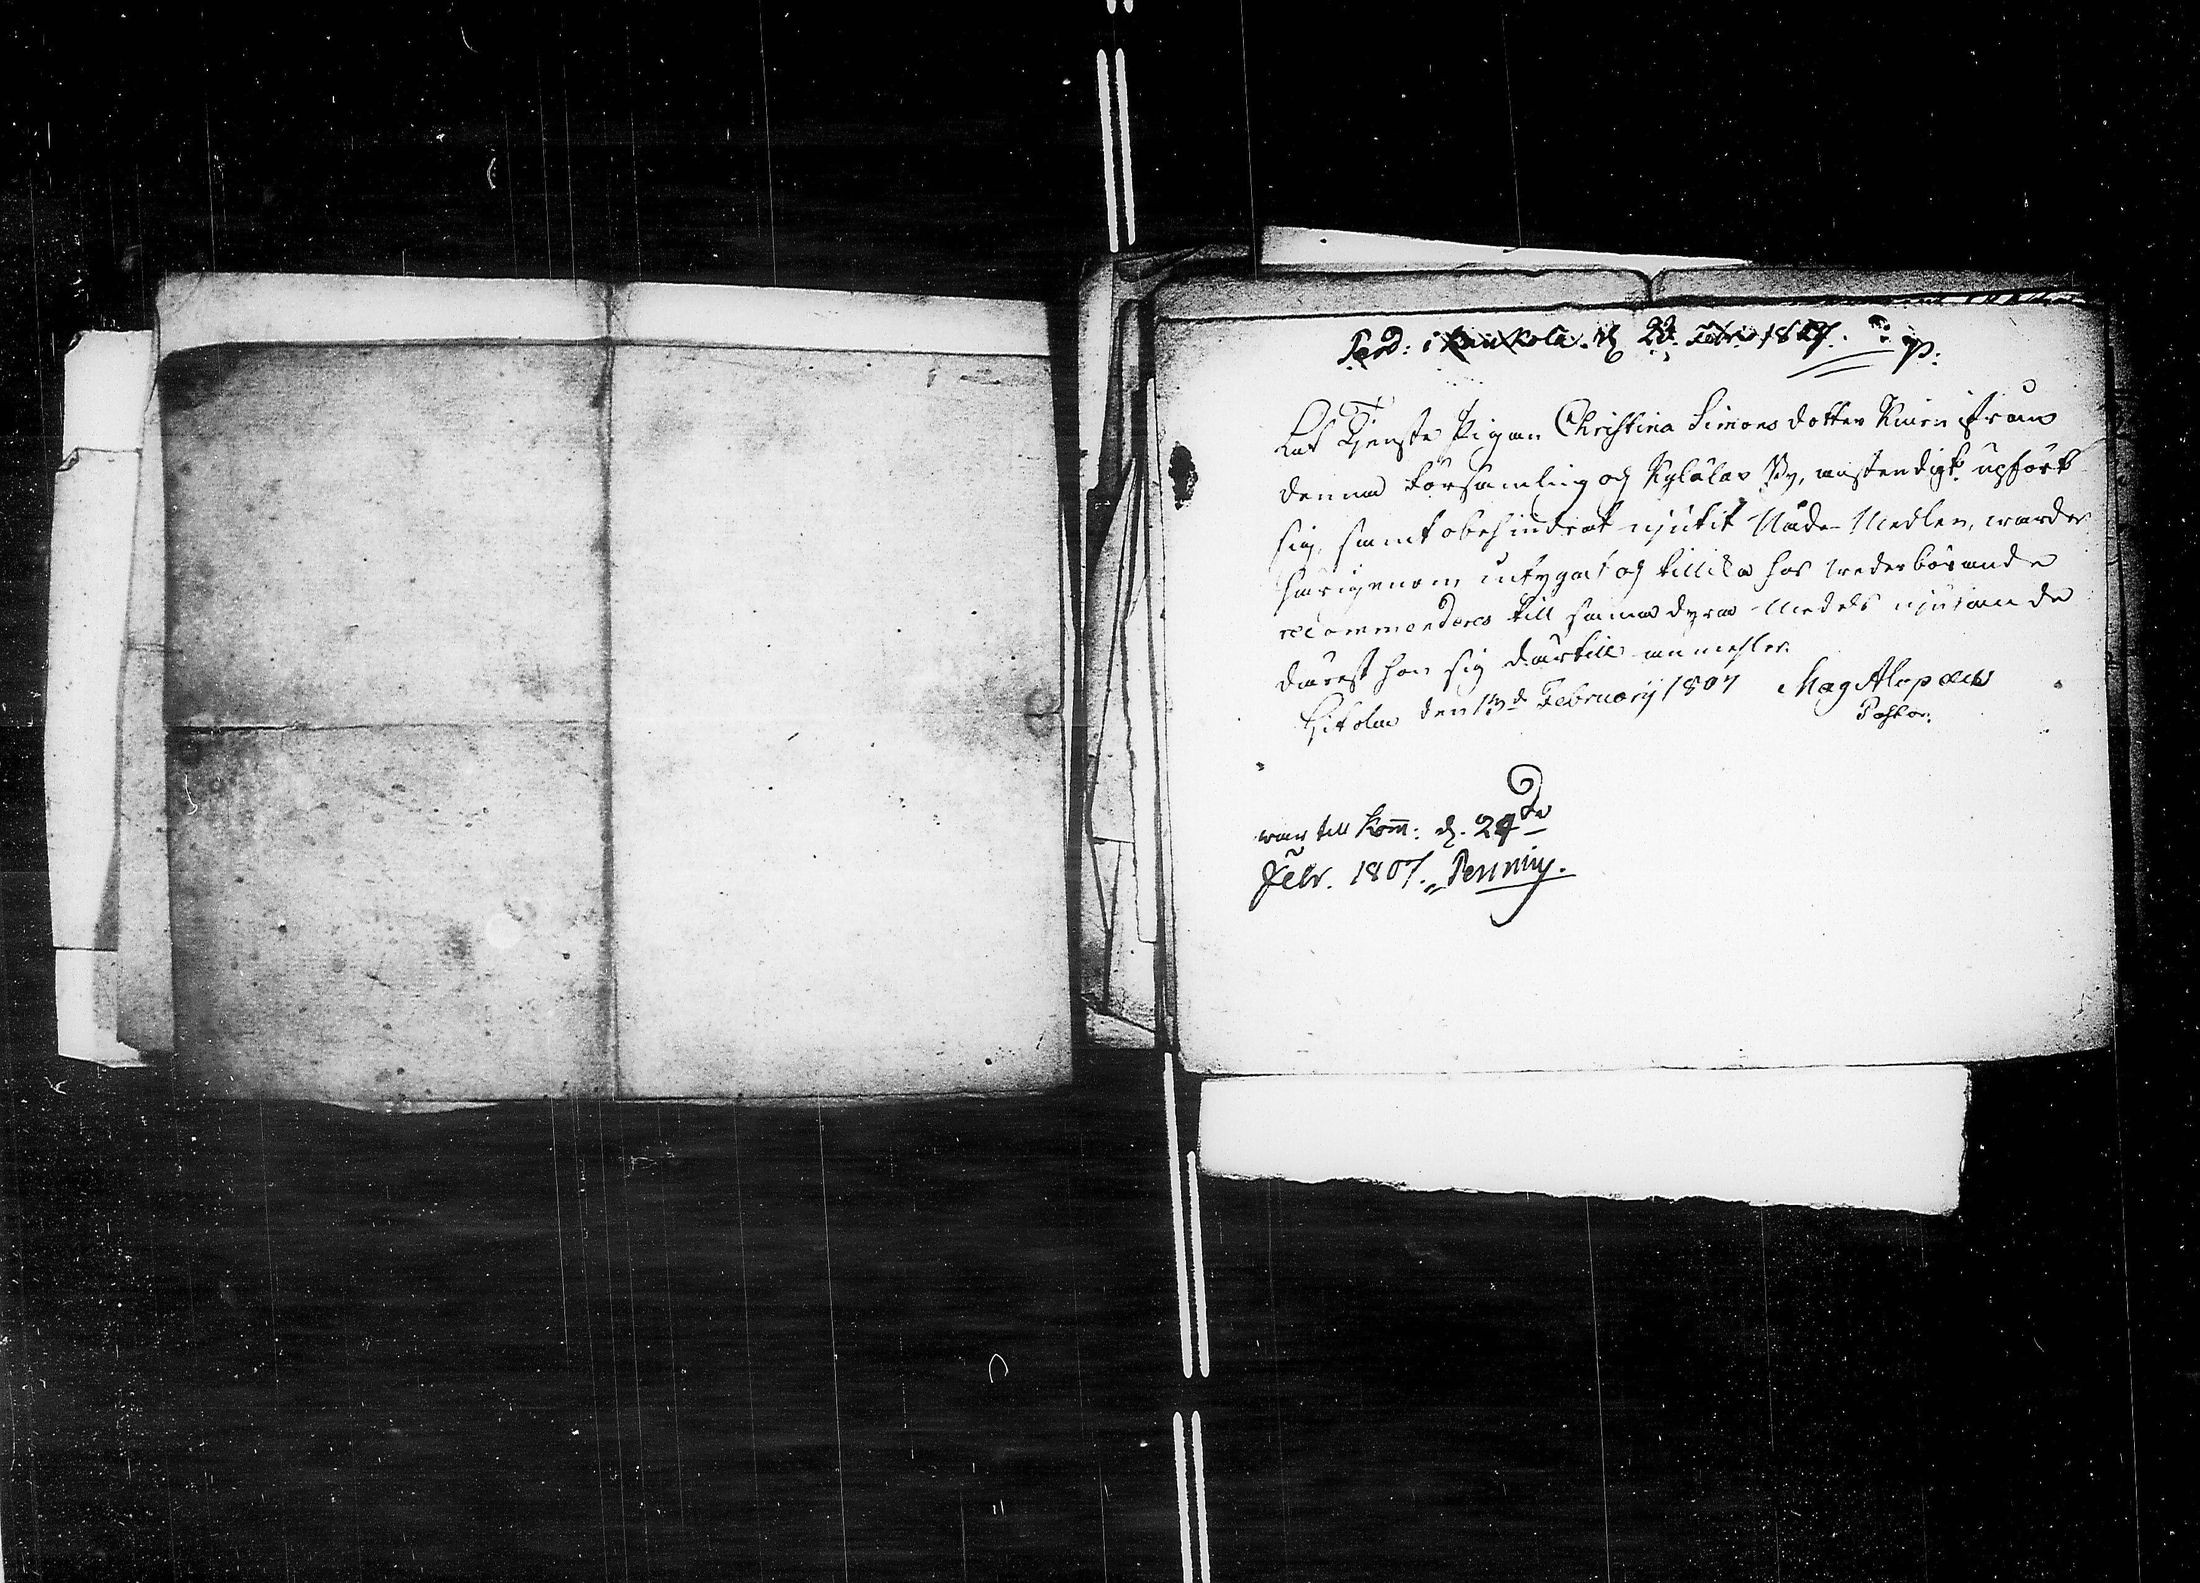 Prod: i Kaukola d. 22 Febr. 1807. P:
Lat Tjenste Pigan Christina Simons dotter Kuisn ifrån
denna Församling och Kylälax By, anstendigt upfört
sig, samt obehindrat njutit Nåde Medlen, warder
härigenom intygat och tillika hos wederbörande
recommenderes till samma dyra Medels njutande
därest hon sig därtill anmeler.
Hitola den 13d February 1807 Mag Alopæus
Pastor.
war till Kom: d. 24de
Febr. 1807. Penning.